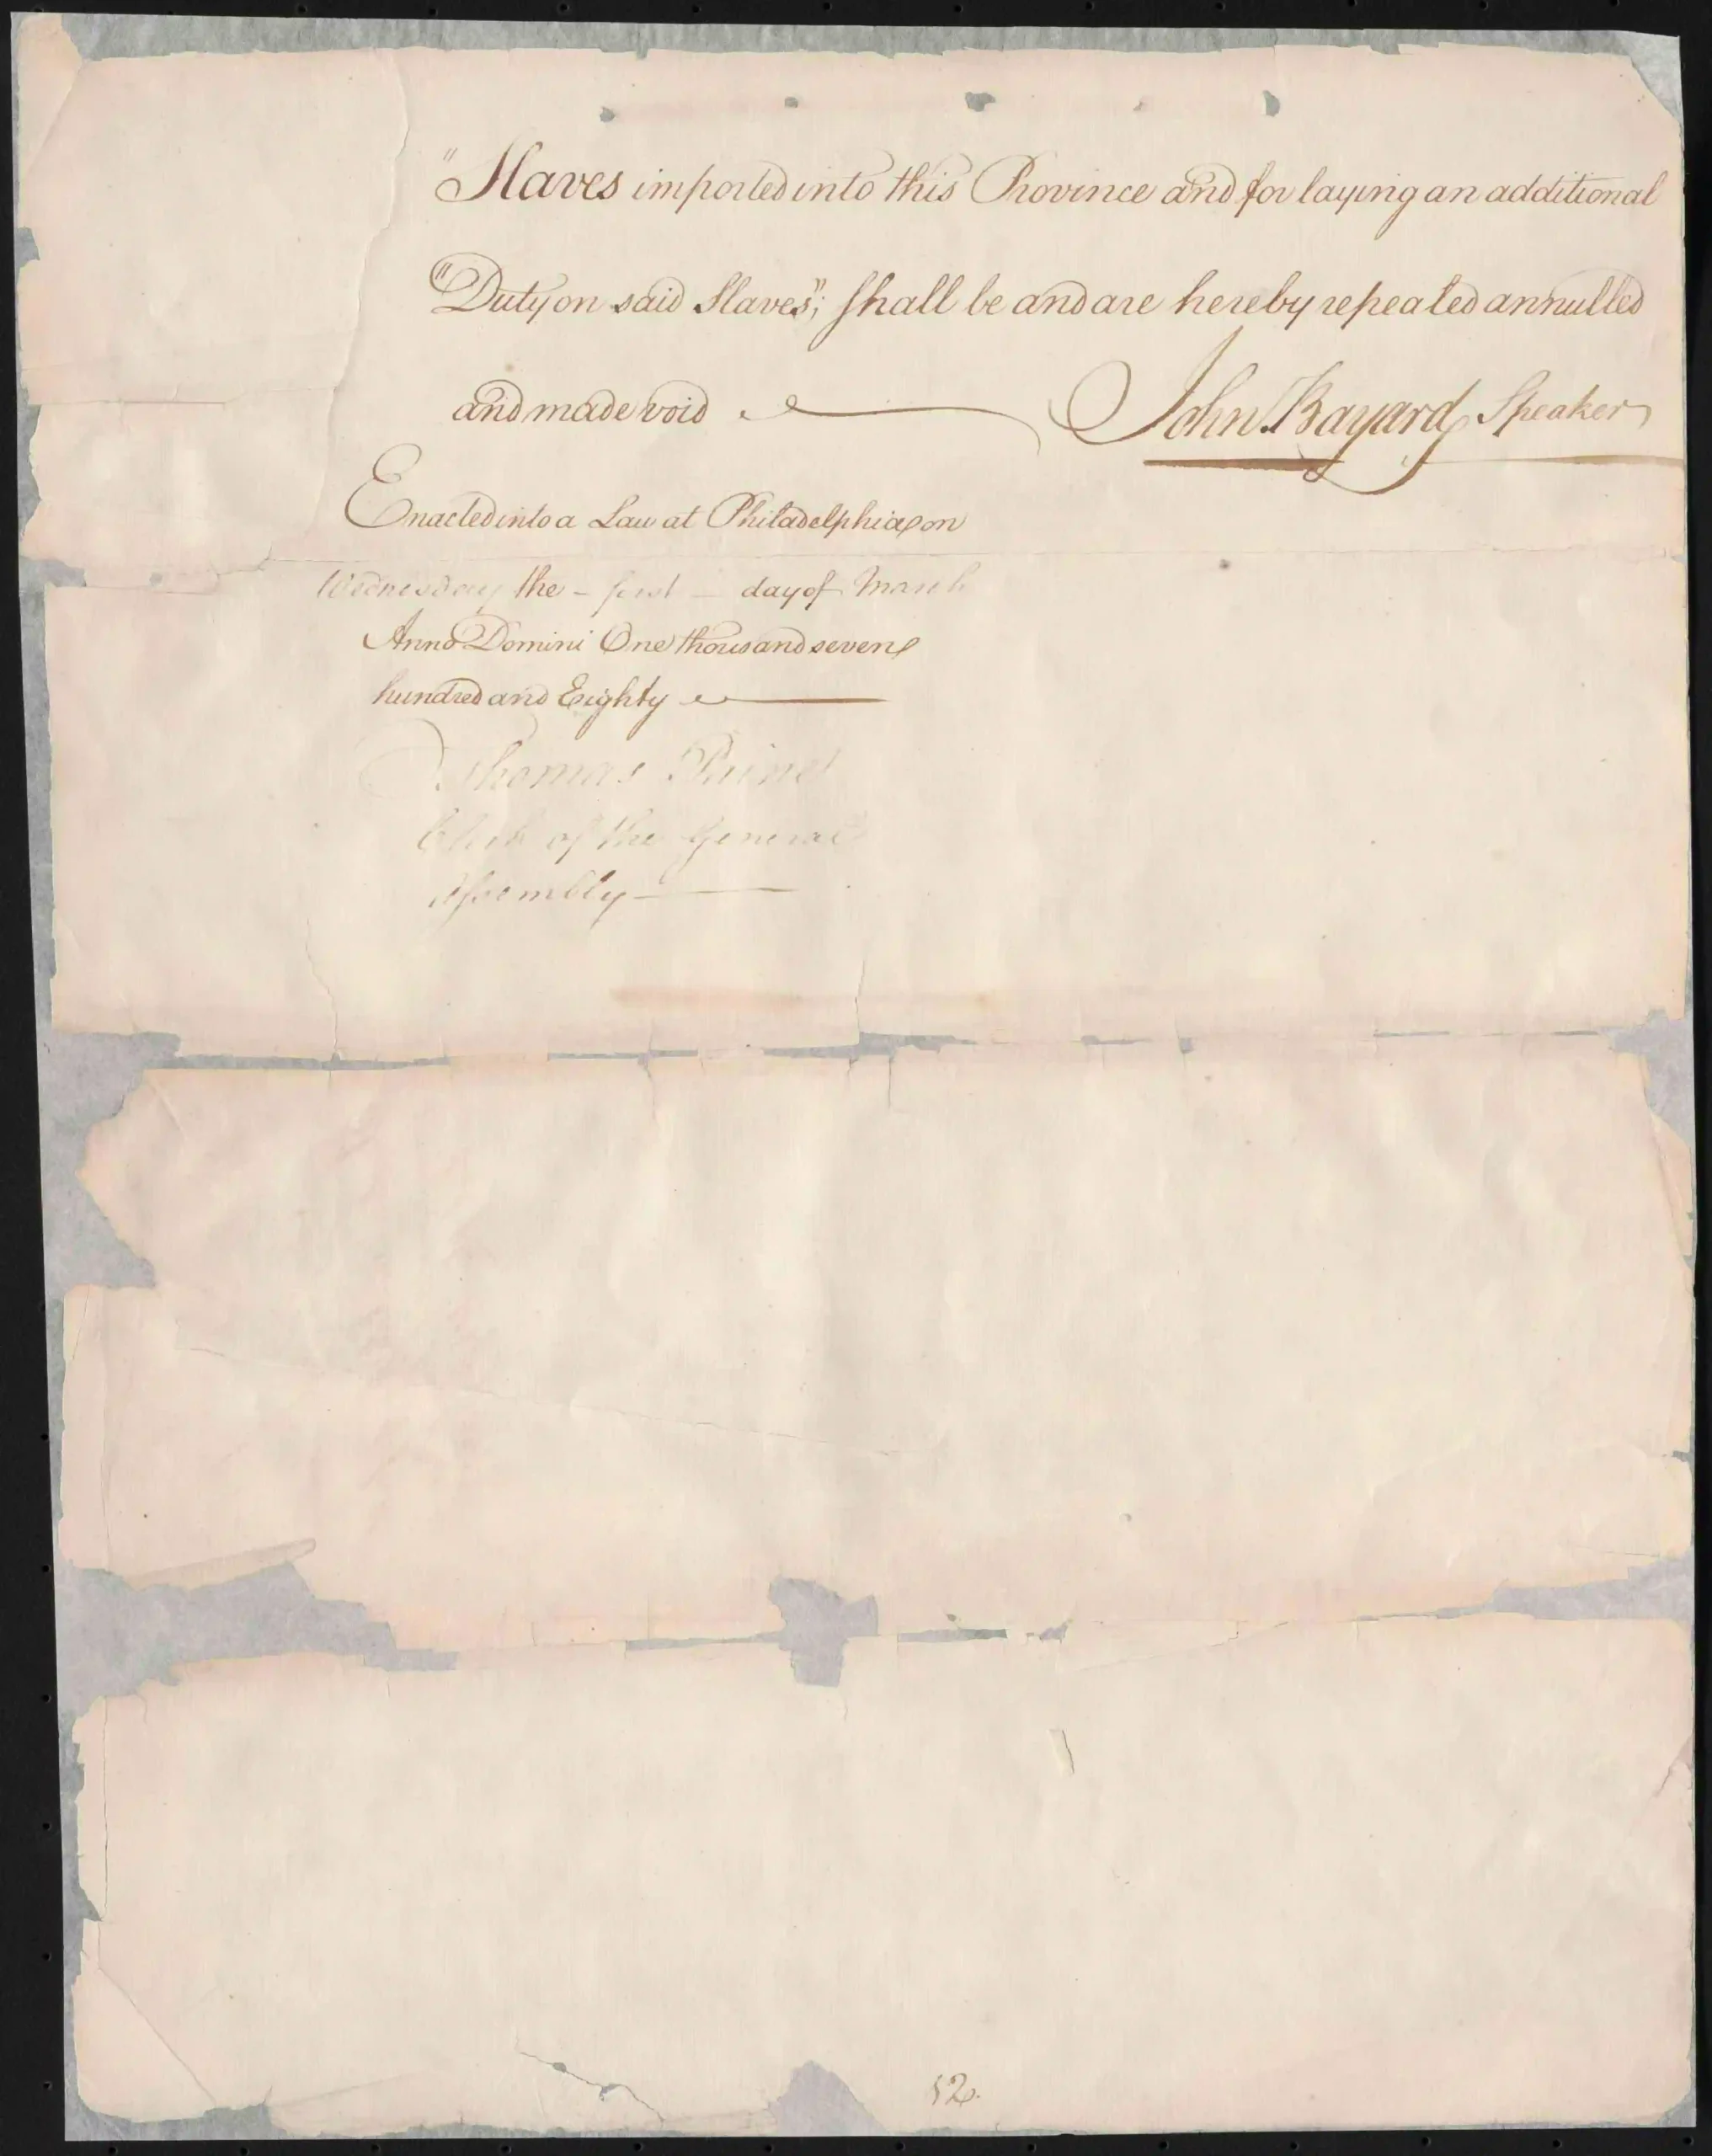 "Slaves imported into this Province and for laying an additional
"Duty on said Slaves"; shall be and are hereby repealed annulled
and made void
John Bayard Speaker
Enacted into a Law at Philadelphia on
Wednesday the - first - day of March
Anno Domini One thousand seven
hundred and Eighty
Thomas Paine
Clerk of the General
Assembly
52.